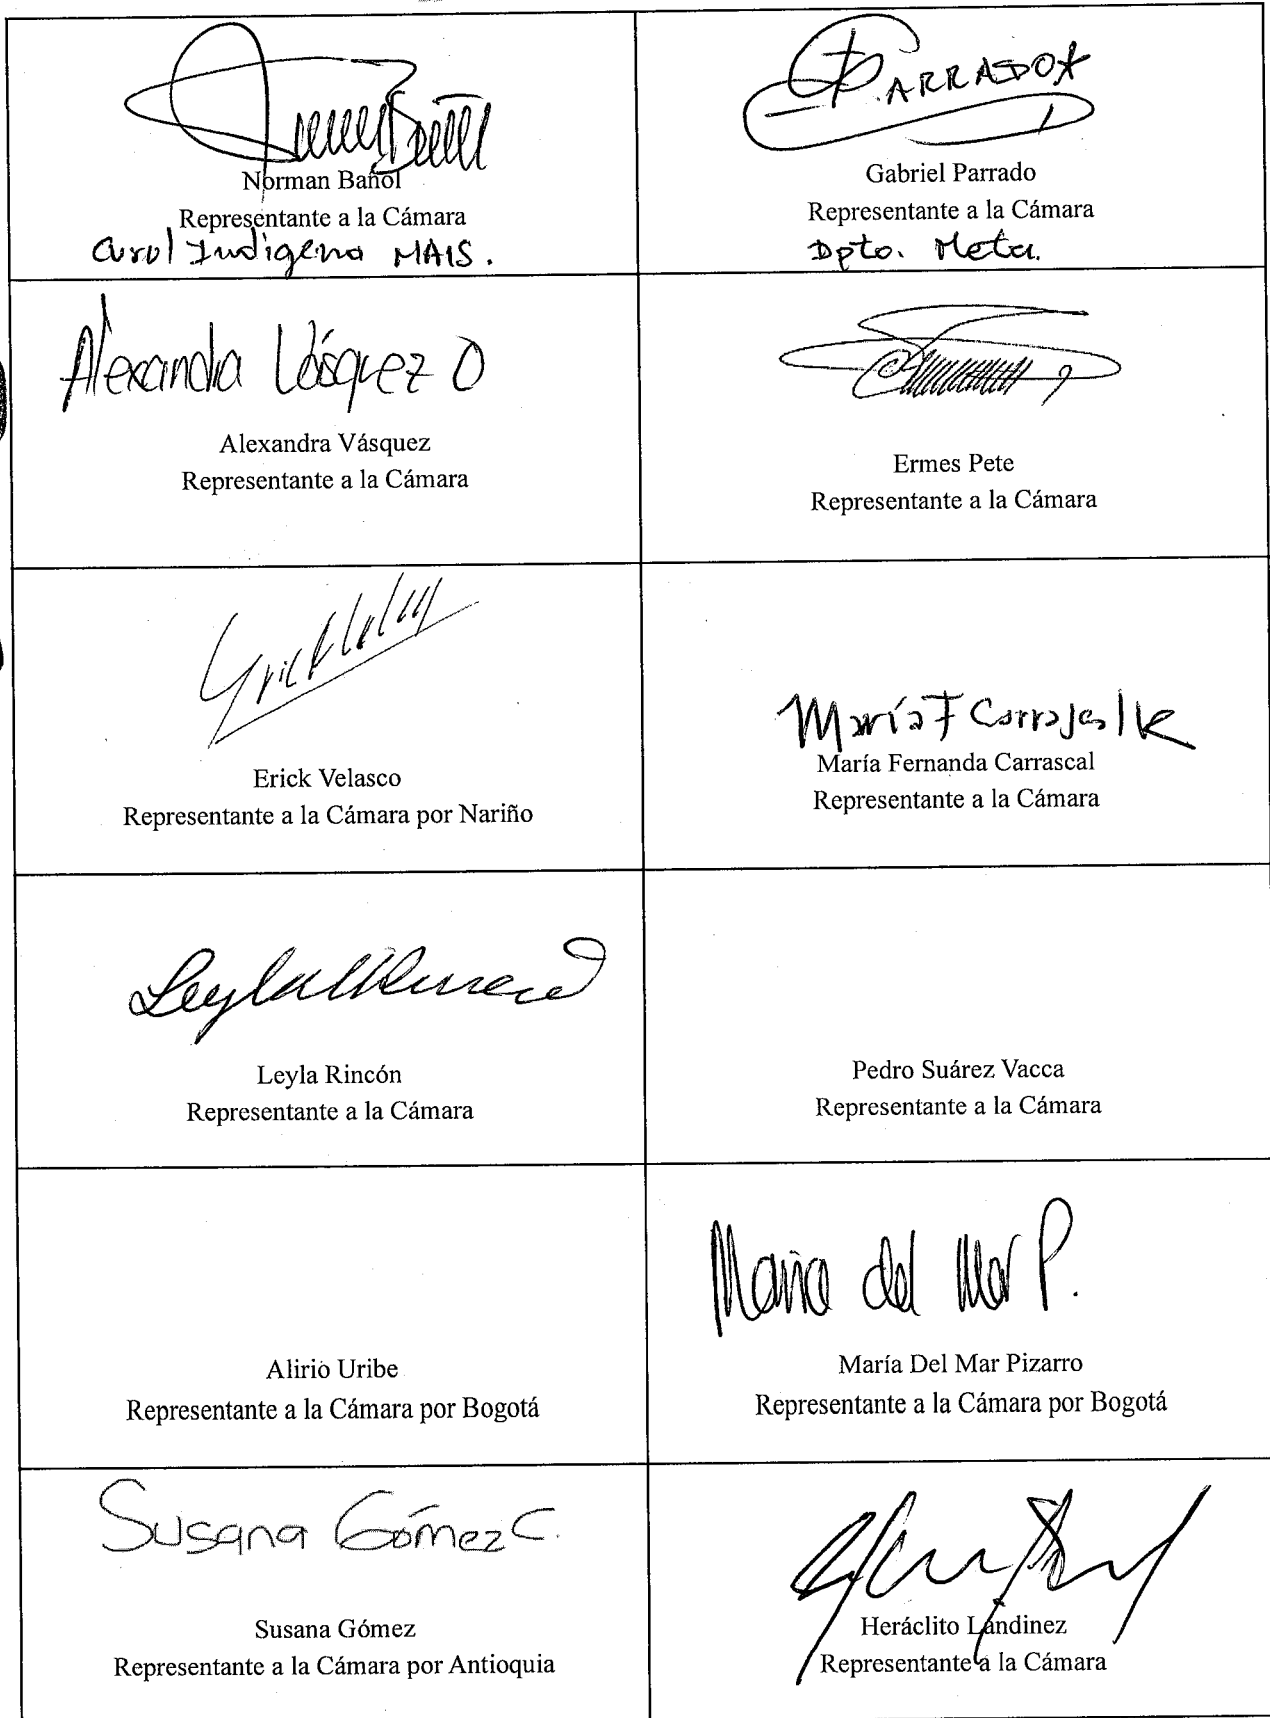 PARRADO
Norman Bañol
Representante a la Cámara
Curul Indígena MAIS.
Gabriel Parrado
Representante a la Cámara
Dpto. Meta.
Alexandra Vásquez O
Alexandra Vásquez
Representante a la Cámara
Ermes Pete
Representante a la Cámara
Erick Velasco
Representante a la Cámara por Nariño
María F Carrascal
María Fernanda Carrascal
Representante a la Cámara
Leyla Rincón
Representante a la Cámara
Pedro Suárez Vacca
Representante a la Cámara
Alirio Uribe
Representante a la Cámara por Bogotá
María del Mar P.
María Del Mar Pizarro
Representante a la Cámara por Bogotá
Susana Gómez C.
Susana Gómez
Representante a la Cámara por Antioquia
Heráclito Landinez
Representante a la Cámara